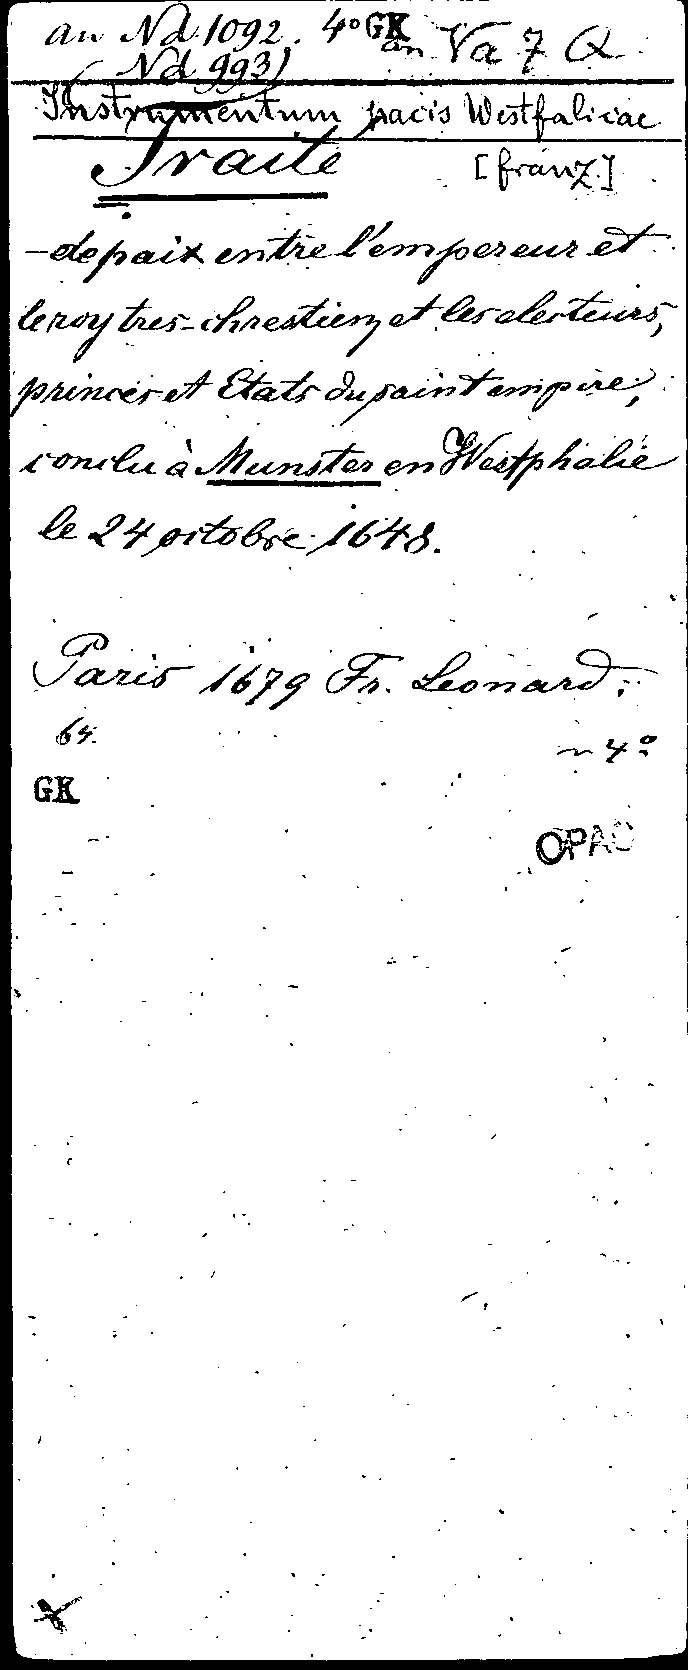 an Nd 1092. 4° GK an Va 7 Q
(Nd 993)
Instrumentum pacis Westfalicae
Traité [franz.]
– de paix entre l'empereur et
le roy tres-chrestien et les electeurs,
princes et Etats du saint empire,
conclu à Munster en Westphalie
le 24 octobre 1648.
Paris 1679 Fr. Leonard.
64.
4°
GK
OPAC